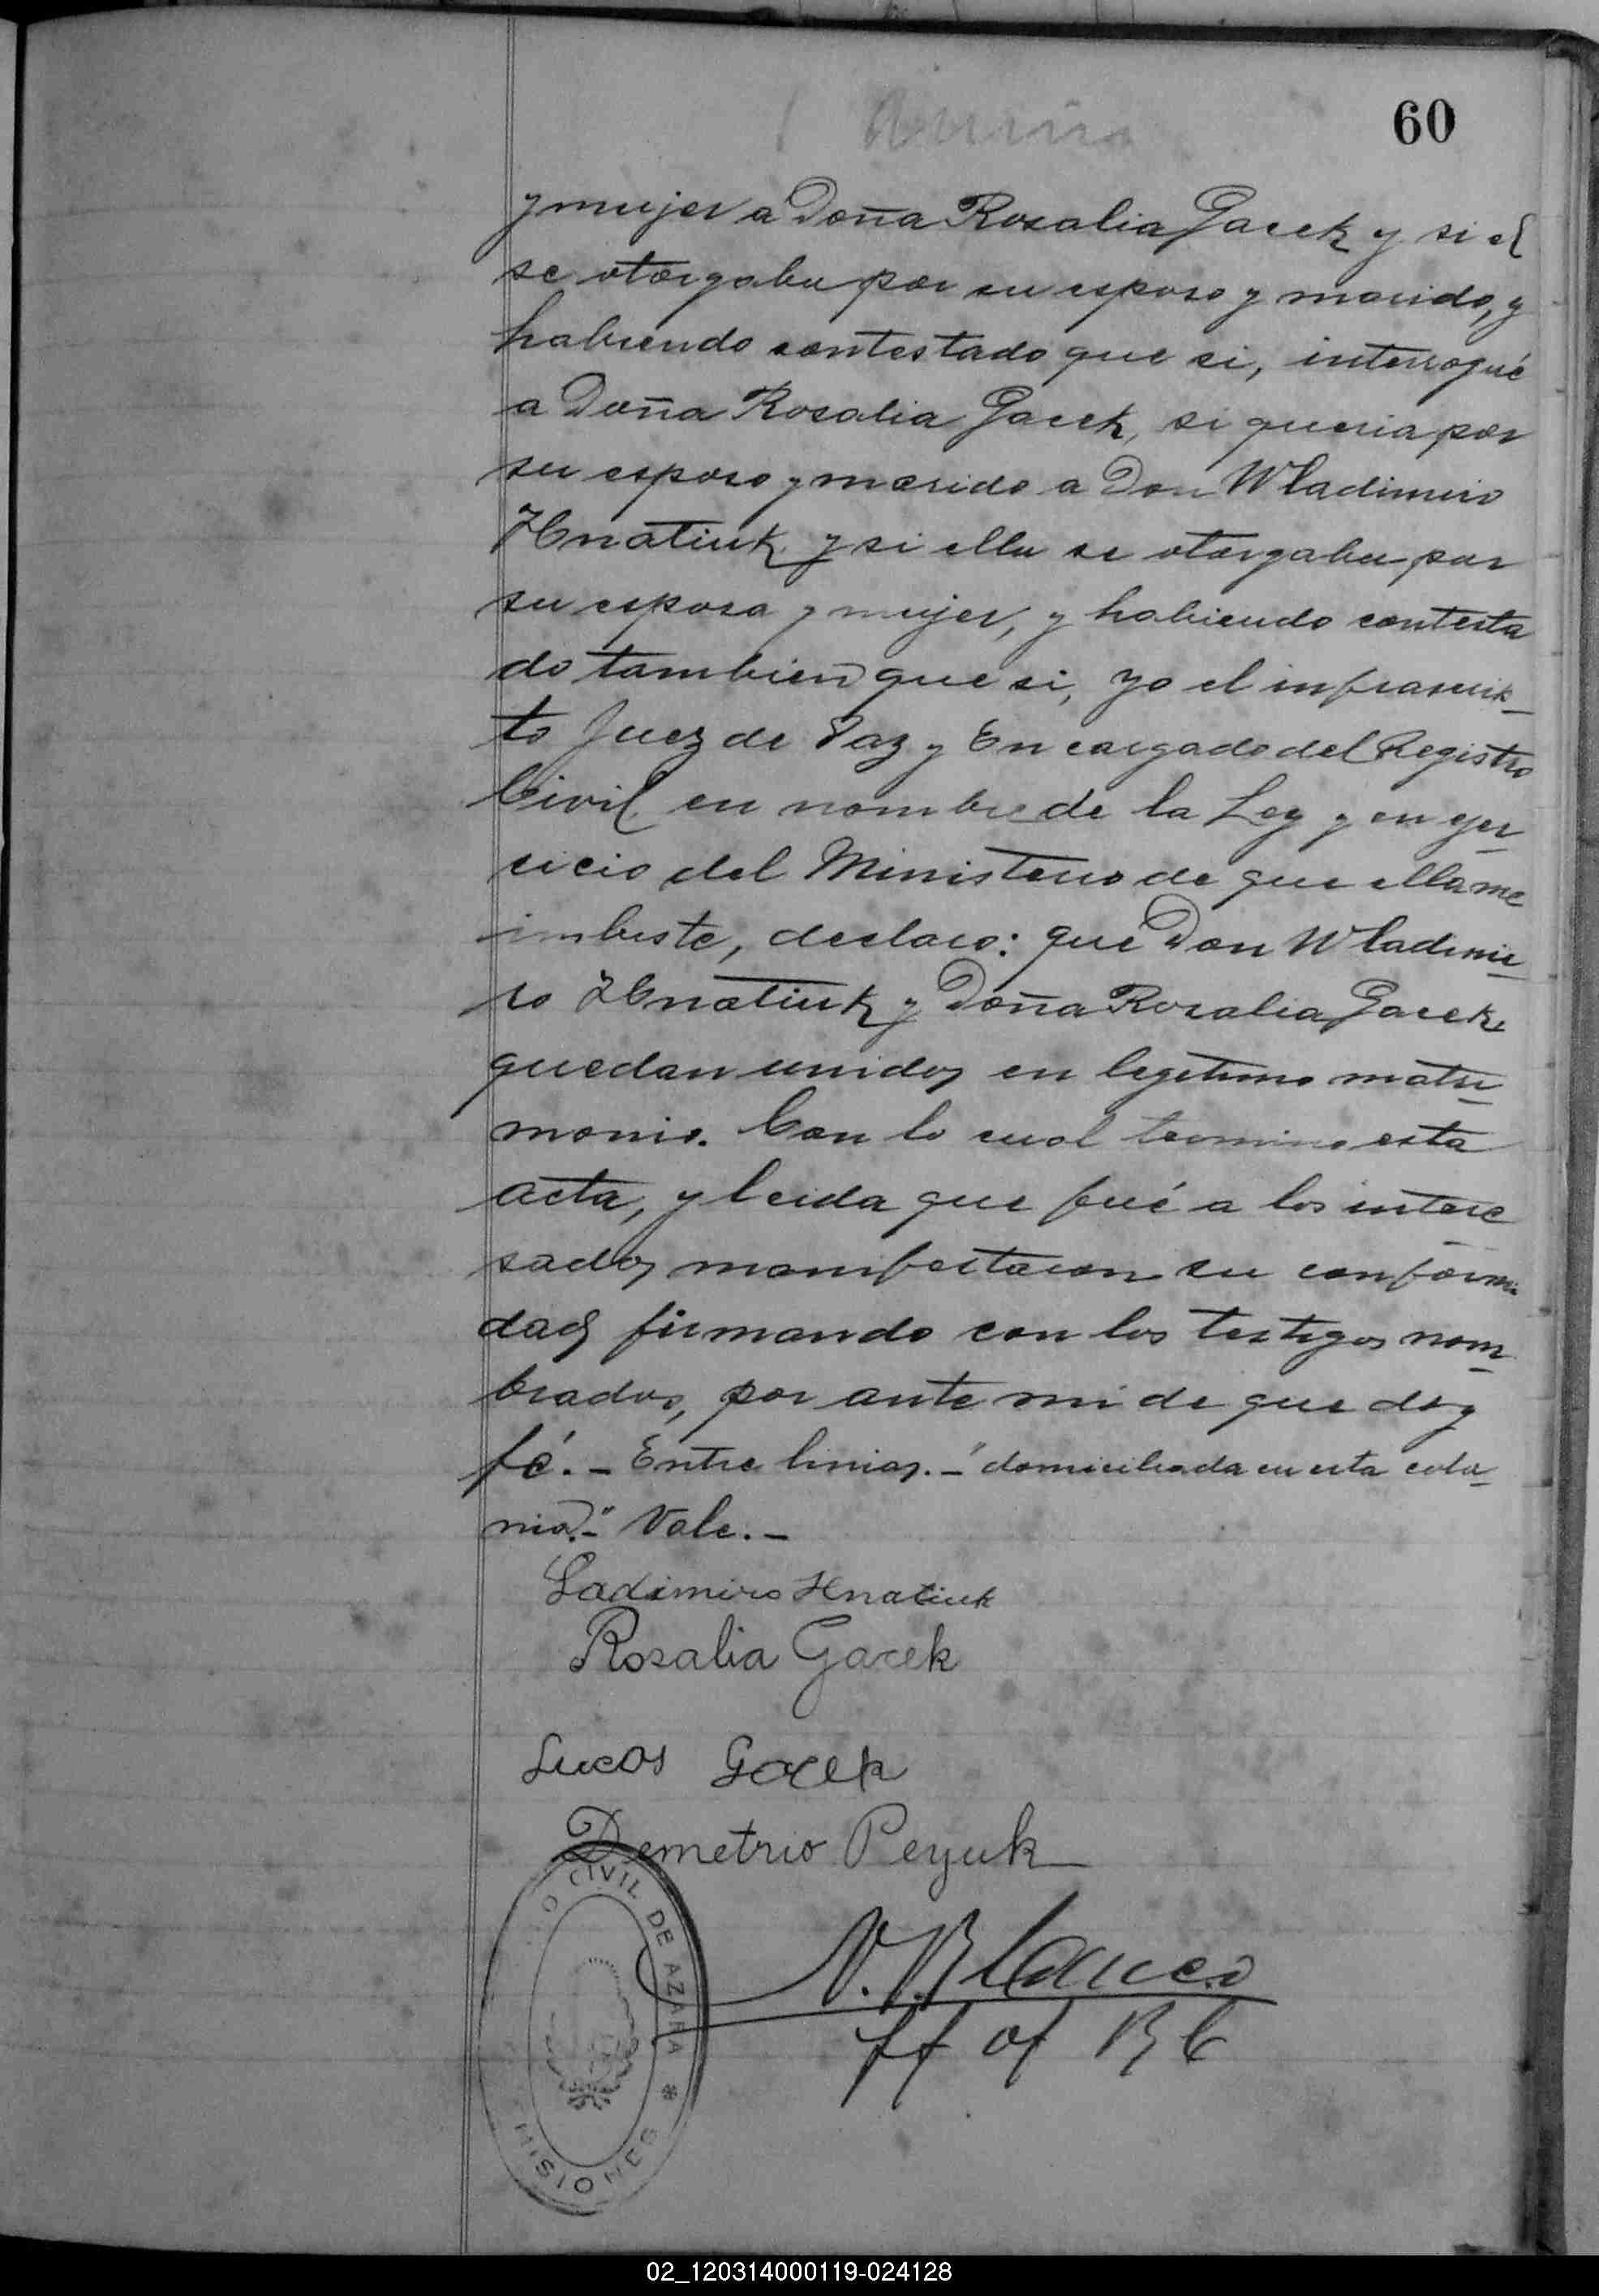 60
y mujer a Doña Rosalia Gacek y si el
se otorgaba por su esposo y marido, y
habiendo contestado que si, interrogué
a Doña Rosalia Gacek, si queria por
su esposo y marido a Don Wladimiro
Hnatiuk y si ella se otorgaba por
su esposa y mujer, y habiendo contesta
do tambien que si, yo el infrascrip-
to Juez de Paz y Encargado del Registro
Civil en nombre de la Ley y en ejer-
cicio del Ministerio de que ella me
imbiste, declaro: que Don Wladimi-
ro Hnatiuk y Doña Rosalia Gacek
quedan unidos en legitimo matri-
monio. Con lo cual termino esta
acta, y leida que fué a los intere-
sados manifestaron su conformi-
dad firmando con los testigos nom-
brados, por ante mi de que doy
fé. - Entre linias. - "domiciliada en esta colo-
nia". - Vale. -
Ladimiro Hnatiuk
Rosalia Gacek
Lucas Gacek
Demetrio Peyuk
N. Blanco
ff of RC
O CIVIL DE AZARA * MISIONES
02_120314000119-024128